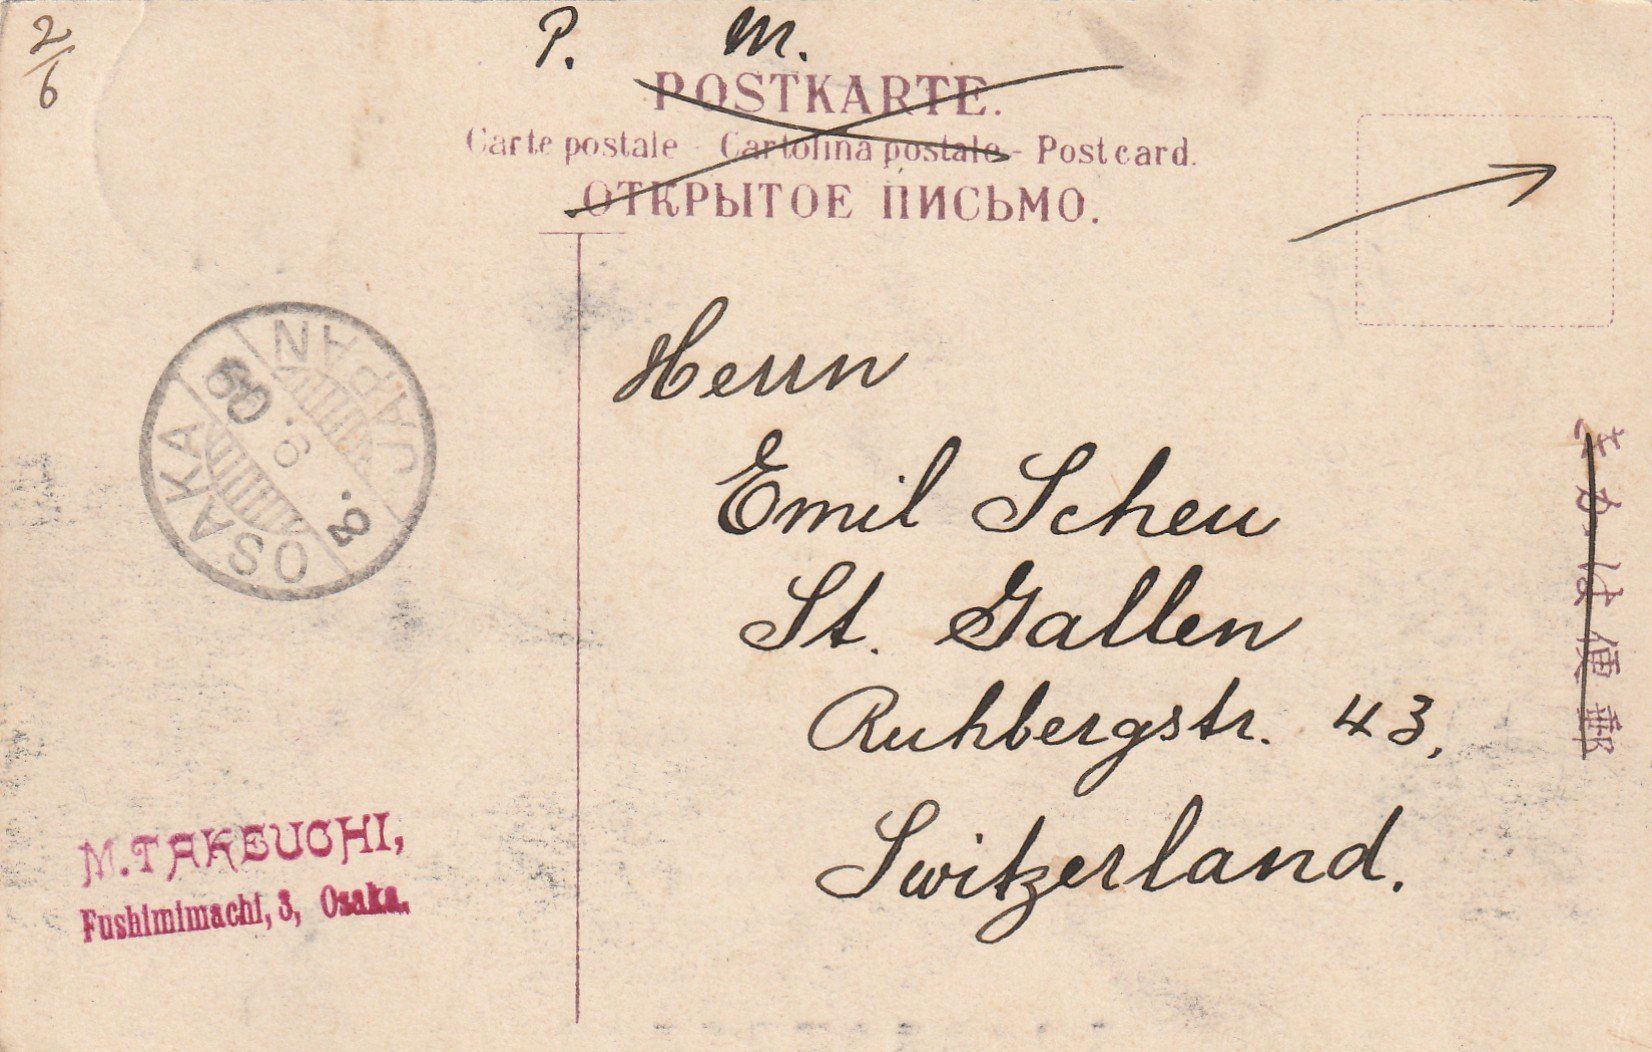 2/6
P. M.
POSTKARTE.
Carte postale - Cartolina postale - Postcard.
ОТКРЫТОЕ ПИСЬМО.
OSAKA
8. 6. 09
JAPAN
Herrn
Emil Scheu
St. Gallen
Ruhbergstr. 43,
Switzerland.
郵便はかき
M. TAKEUCHI,
Fushimimachi, 3, Osaka.